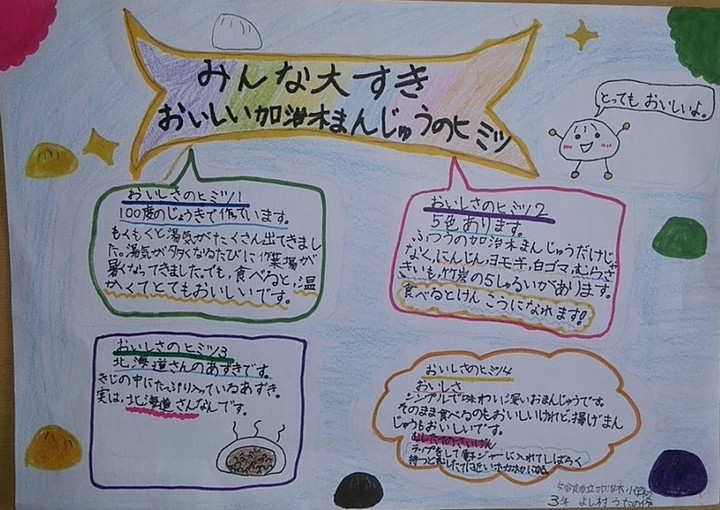 みんな大すき
おいしい加治木まんじゅうのヒミツ
とっても おいしいよ。
おいしさのヒミツ1
100度のじょうきで作ています。
もくもくと湯気がたくさん出てきまし
た。湯気が多くなるたびに作業場が
暑くなってきました。でも、食べると、温
かくてとてもおいしいです。
おいしさのヒミツ2
5色あります。
ふつうの加治木まんじゅうだけじゃ
なく、にんじん、ヨモギ、白ゴマ、むらさ
きいも、竹炭の5しゅるいがあります。
食べるとけんこうになれます!
おいしさのヒミツ3
北海道さんのあずきです。
きじの中にたっぷり入っているあずき。
実は、北海道さんなんです。
おいしさのヒミツ4
おいしさ
シンプルで味わい深いおまんじゅうです。
そのまま食べるのもおいしいけれど、揚げまん
じゅうもおいしいです。
ラップをして
ジャーに入れてしばらく
待つと
加治木小学校
3年 よし村 うた